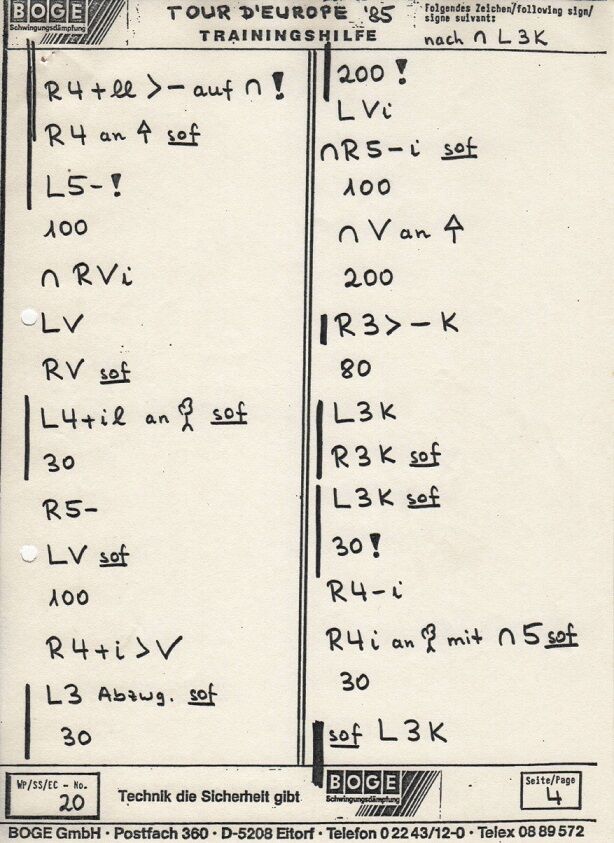 BOGE
Schwingungsdämpfung
TOUR D'EUROPE '85
TRAININGSHILFE
Folgendes Zeichen/following sign/
signe suivant:
nach ∩ L3K
R4+ll >- auf ∩ !
R4 an ↑ sof
L5-!
100
∩ RVi
LV
RV sof
L4+il an sof
30
R5-
LV sof
100
R4+i>V
L3 Abzwg. sof
30
200 !
LVi
∩R5-i sof
100
∩ V an ↑
200
R3>-K
80
L3K
R3K sof
L3K sof
30!
R4-i
R4i an mit ∩ 5 sof
30
sof L3K
WP/SS/EC - No.
20
Technik die Sicherheit gibt
BOGE
Schwingungsdämpfung
Seite/Page
4
BOGE GmbH · Postfach 360 · D-5208 Eitorf · Telefon 0 22 43/12-0 · Telex 08 89 572